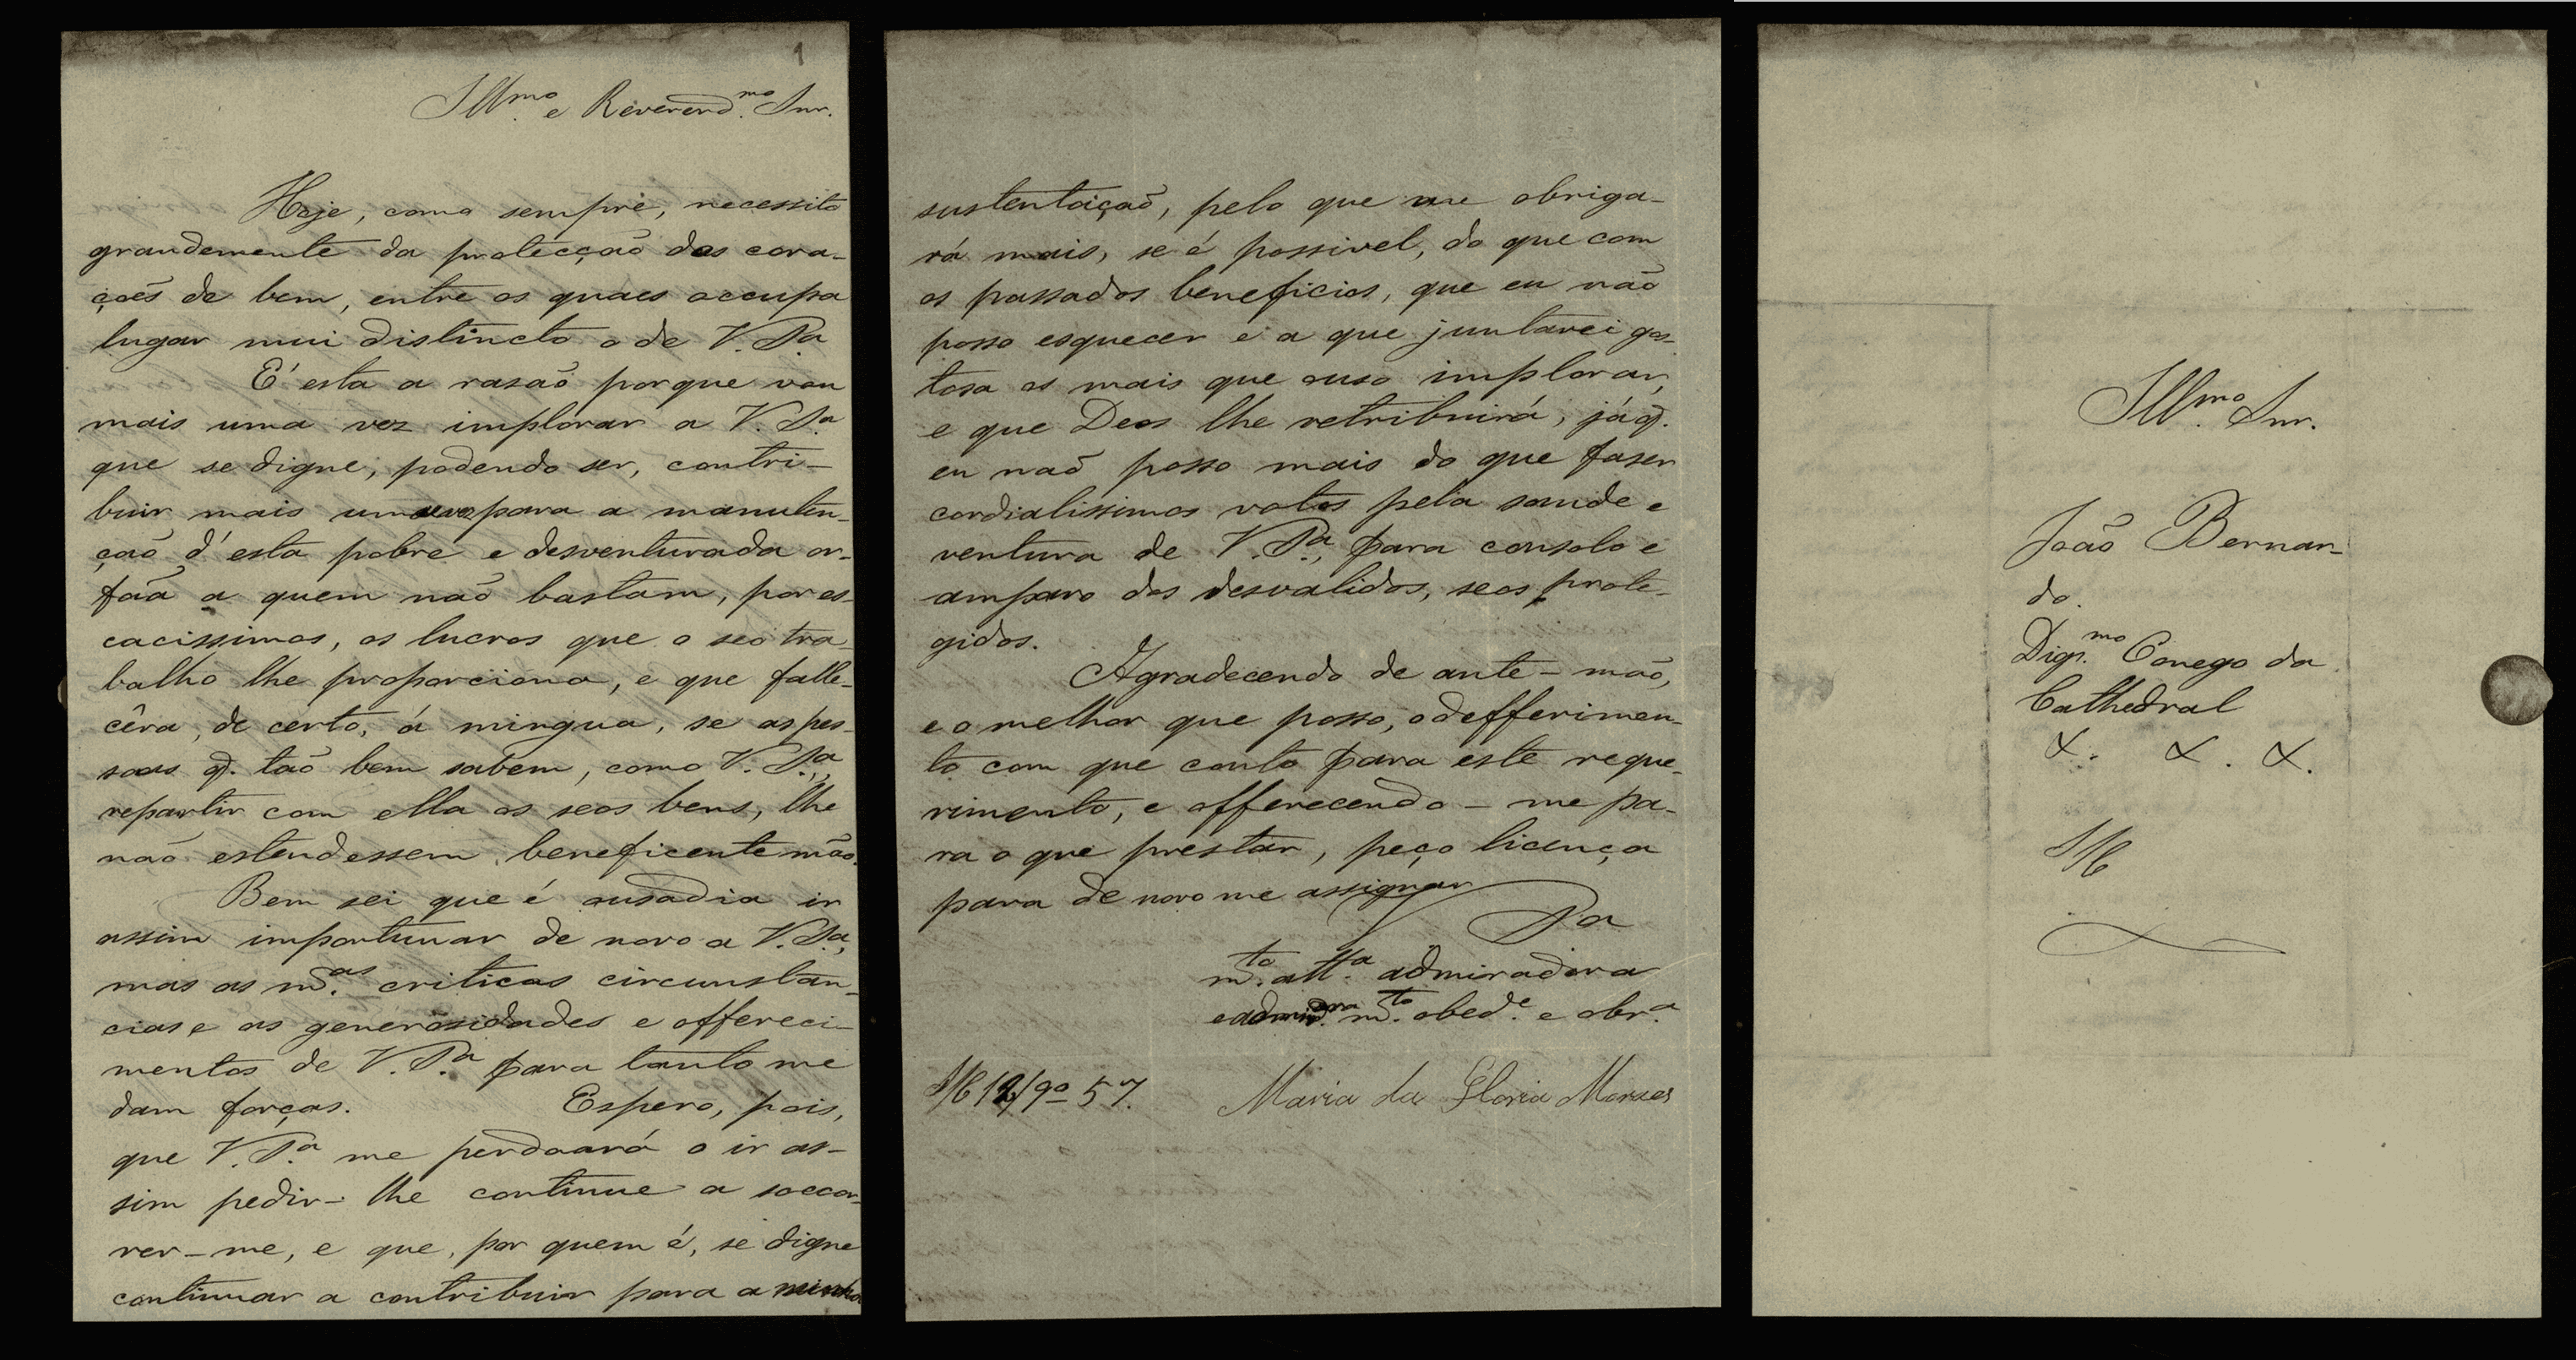 1
Illmo. e Reverendmo. Snr.
Hoje, como sempre, necessito
grandemente da protecçaõ dos cora-
çoẽs de bem, entre os quaes occupa
lugar mui distincto o de V. Sa.
É esta a rasaõ porque vou
mais uma vez implorar a V. Sa.
que se digne, podendo ser, contri-
buir mais uma vez para a manuten-
çaõ d'esta pobre e desventurada or-
faã a quem naõ bastam, por es-
cacissimos, os lucros que o seo tra-
balho lhe proporciona, e que falle-
cêra, de certo, á mingua, se as pes-
soas q. taõ bem sabem, como V. Sa.,
repartir com ella os seos bens, lhe
naõ estendessem beneficente maõ.
Bem sei que é ousadia ir
assim importunar de novo a V. Sa.,
mas as mas. criticas circunstan-
cias e as generosidades e offereci-
mentos de V. Sa. para tanto me
dam forças. Espero, pois,
que V. Sa. me perdoará o ir as-
sim pedir-lhe continue a soccor-
rer-me, e que, por quem é, se digne
continuar a contribuir para a minha
sustentaçaõ, pelo que me obriga-
rá mais, se é possivel, do que com
os passados beneficios, que eu naõ
posso esquecer e a que juntarei gos-
tosa os mais que ouso implorar,
e que Deos lhe retribuirá, já q.
eu naõ posso mais do que faser
cordialissimos votos pela saude e
ventura de V. Sa., para consolo e
amparo dos desvalidos, seos prote-
gidos.
Agradecendo de ante-maõ,
e o melhor que posso, o defferimen-
to com que conto para este reque-
rimento, e offerecendo-me pa-
ra o que prestar, peço licença
para de novo me assignar
De V. Sa
mto. atta. admiradora
e mto. obede. e obra.
12/9o 57.
Maria da Gloria Moraes
Illmo. Snr.
Joaõ Bernar-
do.
Digmo. Conego da
Cathedral
&. &. &.